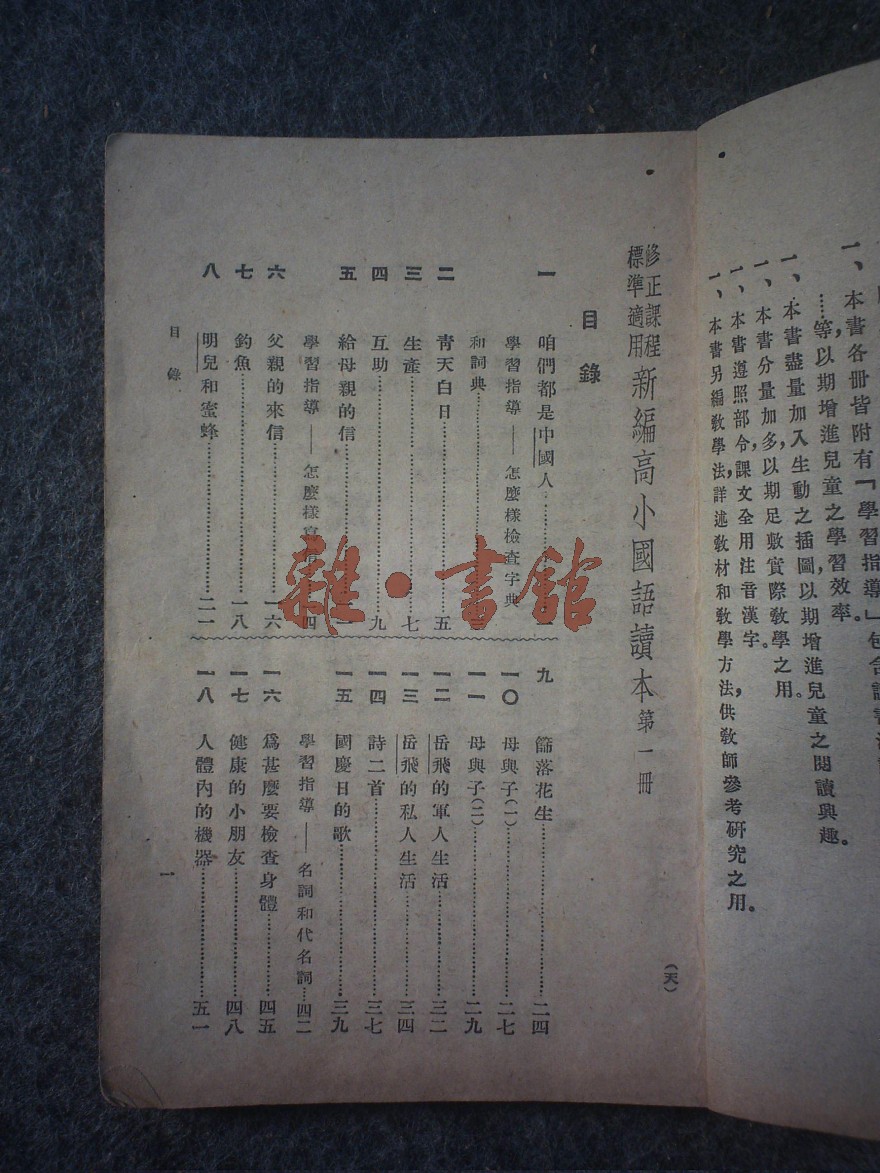 一、本書各冊皆附有「學習指導」包含讀書
……等，以期增進兒童之學習效率。
一、本書盡量加入生動之插圖，以期增進兒童之閱讀興趣。
一、本書分量加多，以期足敷實際教學之用。
一、本書遵照部令，課文全用注音漢字。
一、本書另編教學法，詳述教材和教學方法，供教師參考研究之用。
修正課程
標準適用
新編高小國語讀本第一冊 （天）
目錄
一 咱們都是中國人…………
學習指導——怎麼樣檢查字典
和詞典…………
二 青天白日…………五
三 生產…………七
四 互助…………九
五 給母親的信…………
學習指導——怎麼樣
六 父親的來信…………一六
七 釣魚…………一八
八 明兒和蜜蜂…………二一
九 篩落花生…………二四
一〇 母與子（一）…………二七
一一 母與子（二）…………二九
一二 岳飛的軍人生活…………三二
一三 岳飛的私人生活…………三四
一四 詩二首…………三七
一五 國慶日的歌…………三九
學習指導——名詞和代名詞…四二
一六 爲甚麼要檢查身體…………四五
一七 健康的小朋友…………四八
一八 人體內的機器…………五一
目錄 一
雜·書館